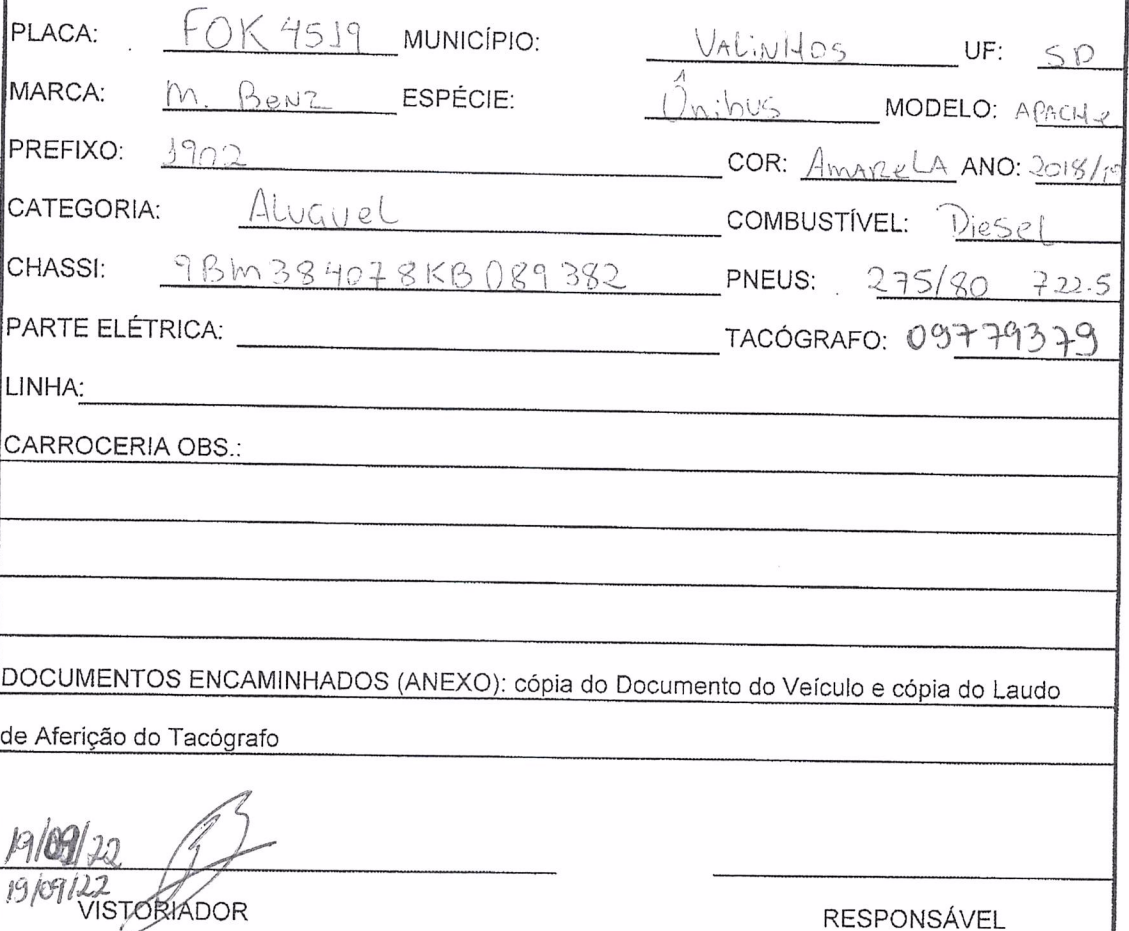 PLACA: FOK 4519 MUNICÍPIO: VALINHOS UF: SP
MARCA: M. BENZ ESPÉCIE: Ônibus MODELO: APACHe
PREFIXO: 1902 COR: AMAReLA ANO: 2018/19
CATEGORIA: ALuGueL COMBUSTÍVEL: Diesel
CHASSI: 9BM384078KB089382 PNEUS: 275/80 722.5
PARTE ELÉTRICA: TACÓGRAFO: 09779379
LINHA:
CARROCERIA OBS.:
DOCUMENTOS ENCAMINHADOS (ANEXO): cópia do Documento do Veículo e cópia do Laudo
de Aferição do Tacógrafo
19/09/22
19/09/22
VISTORIADOR RESPONSÁVEL